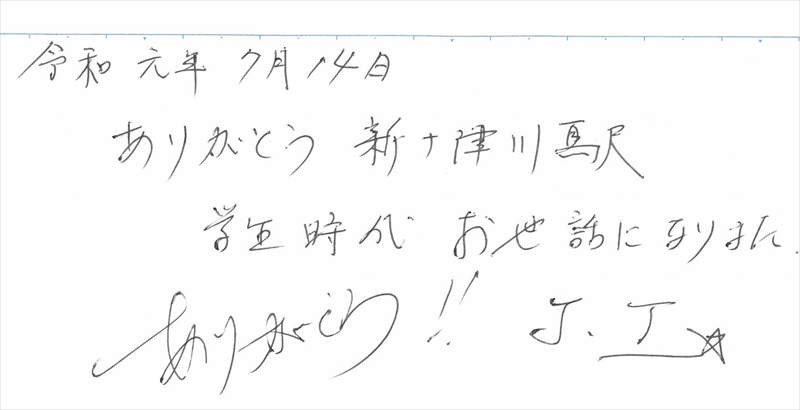 令和元年 7月14日
ありがとう 新十津川駅
学生時代 お世話になりました.
ありがとう!! J.J